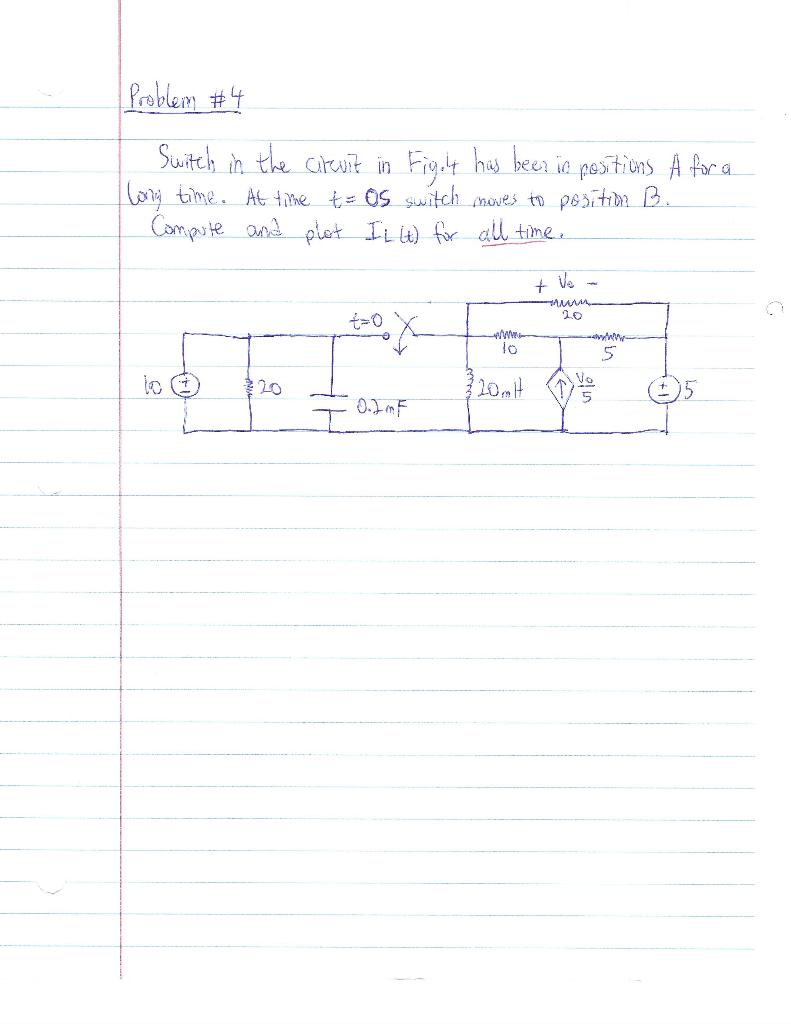 Problem #4
Switch in the circuit in Fig.4 has been in positions A for a
long time. At time t= 0S switch moves to position B.
Compute and plot IL(t) for all time.
+ Vo -
20
t=0
10
5
10
20
0.2mF
20mH
Vo/5
5